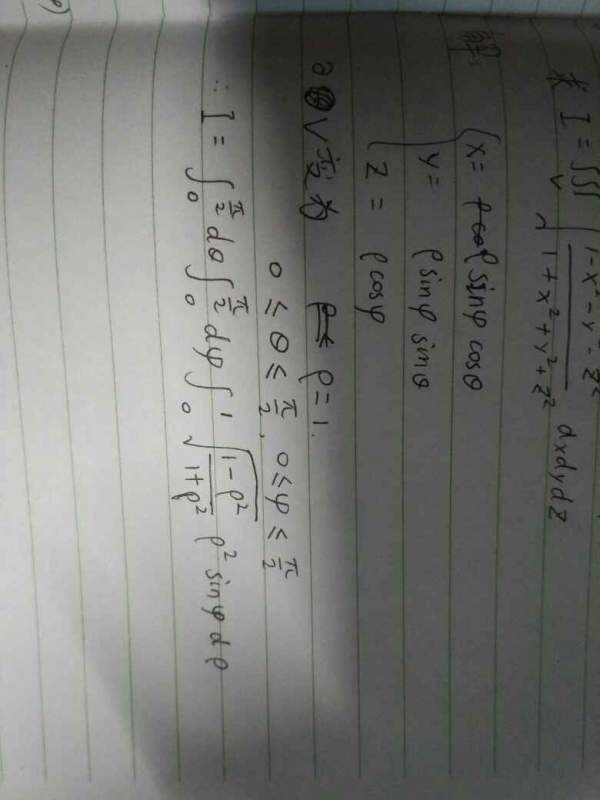 求 I = ∭_V √((1-x²-y²-z²)/(1+x²+y²+z²)) dxdydz
解:
{ x = ρ sinφ cosθ
y = ρ sinφ sinθ
z = ρ cosφ
∂ V 变为 ρ = 1.
0 ≤ θ ≤ π/2, 0 ≤ φ ≤ π/2
∴ I = ∫₀^{π/2} dθ ∫₀^{π/2} dφ ∫₀¹ √((1-ρ²)/(1+ρ²)) ρ² sinφ dρ